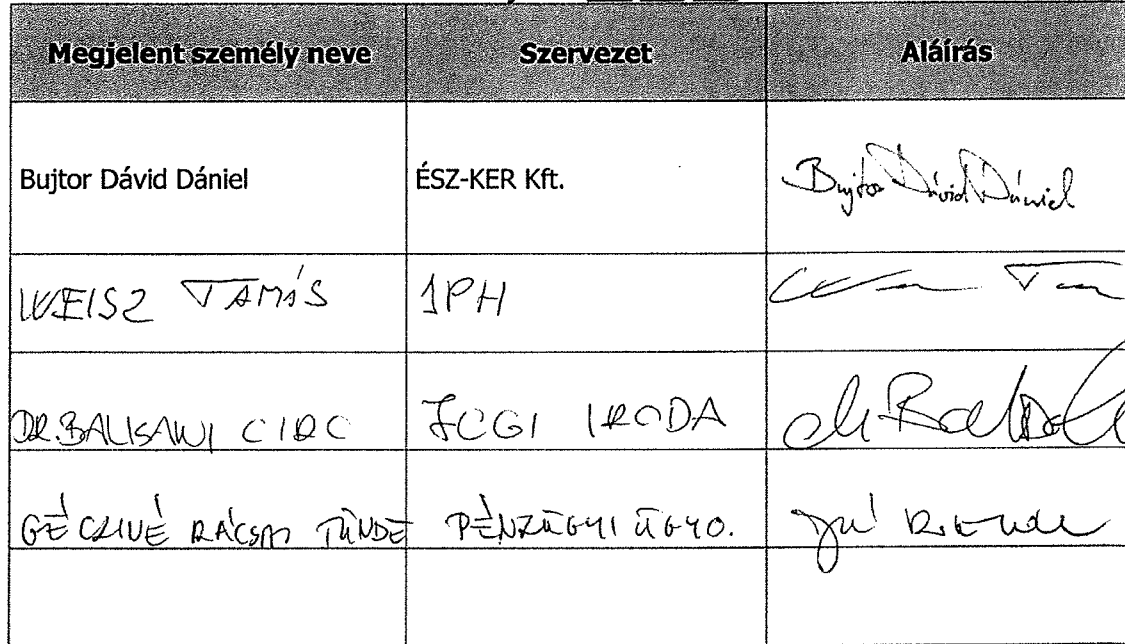 Megjelent személy neve Szervezet Aláírás
Bujtor Dávid Dániel ÉSZ-KER Kft. Bujtor Dávid Dániel
WEISZ TAMÁS 1PH
DR. BALISANI CIRC JOGI IRODA
GÉCZINÉ RÁCSAI TÜNDE PÉNZÜGYI ÜGYO.